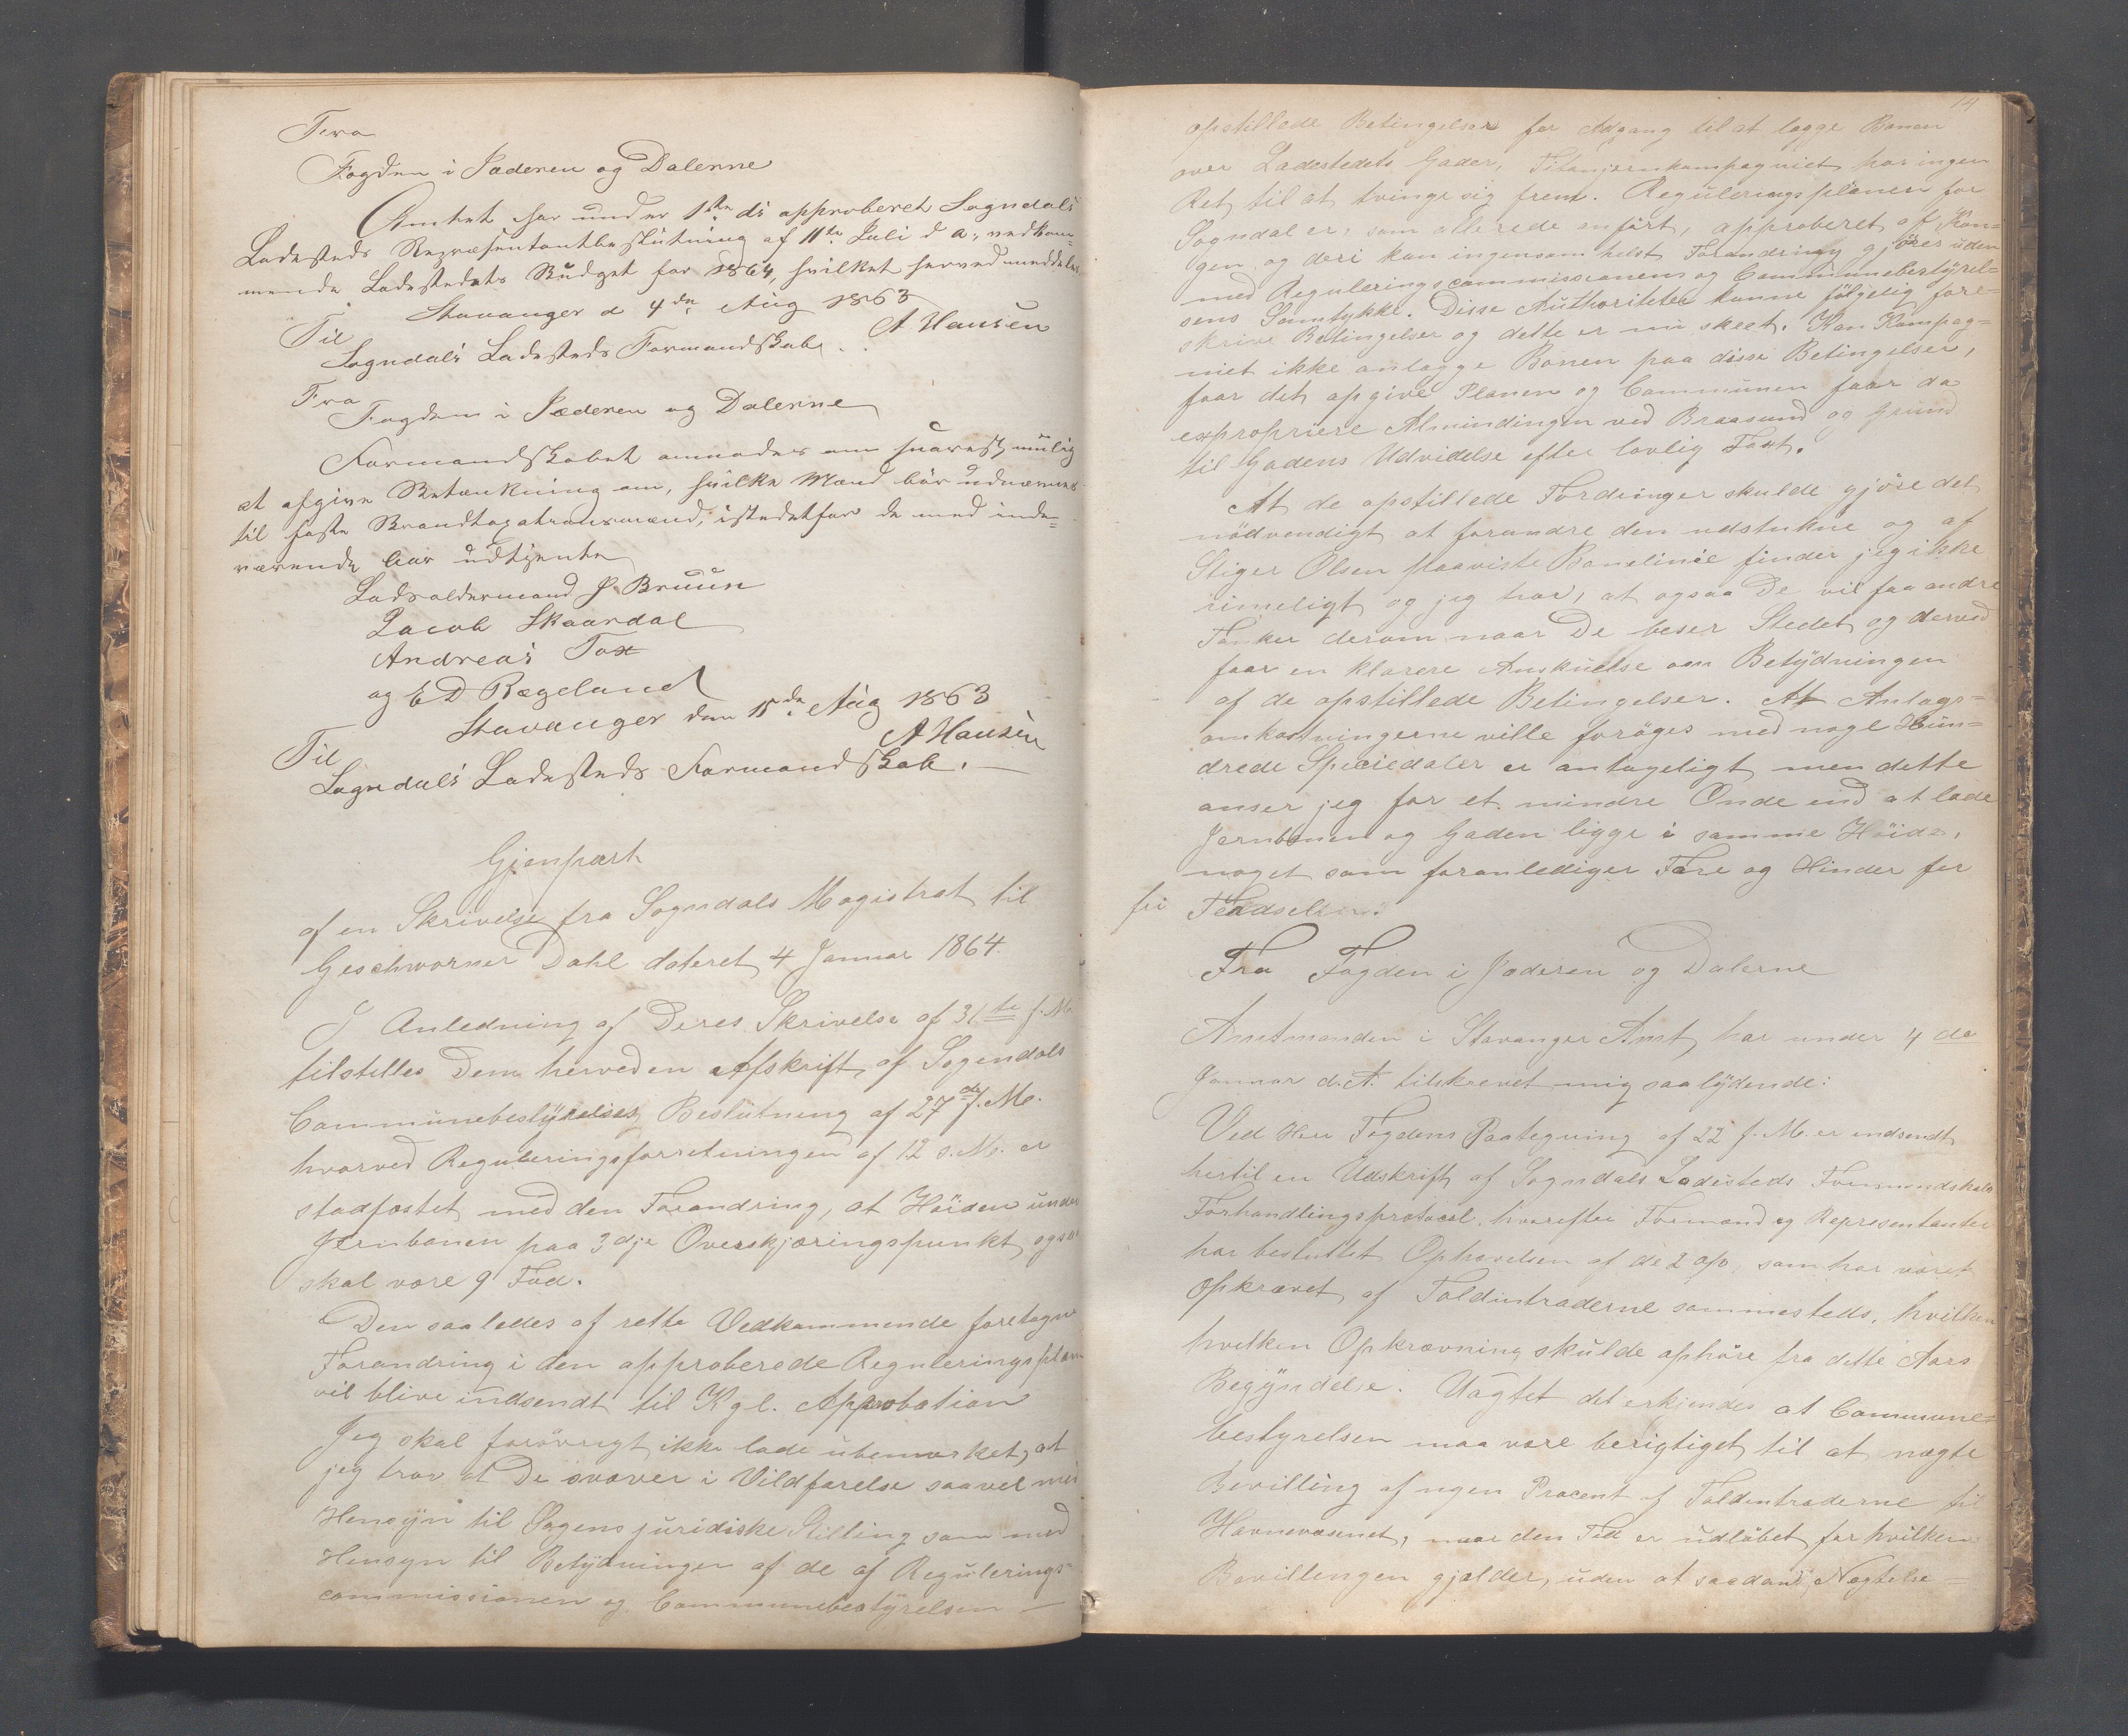 Fra
Fogden i Jæderen og Dalerne
Amtet har under 1ste ds approberet Sogndals
Ladesteds Repræsentantbeslutning af 11te Juli d. a., vedkom-
mende Ladestedets Budget for 1864, hvilket herved meddeles
Stavanger d 4de Aug 1863
A Hansen
Til
Sogndals Ladesteds Formandskab.
Fra
Fogden i Jæderen og Dalerne
Formandskabet anmodes om snarest mulig
at afgive Betænkning om, hvilke Mænd bør udnævnes
til faste Brandtaxationsmænd, istedetfor de med inde-
værende Aar udtjente
Ladsoldermand P. Bruun
Jacob Skaardal
Andreas Tax
og E D Rægeland
Stavanger den 15de Aug 1863
A Hansen
Til
Sogndals Ladesteds Formandskab.
Gjenpart
af en Skrivelse fra Sogndals Magistrat til
Geschworner Dahl dateret 4 Januar 1864.
I Anledning af Deres Skrivelse af 31te f. M.
tilstilles Dem herved en Afskrift af Sogendals
Communebestyrelses Beslutning af 27de f. M.
hvorved Reguleringsforretningen af 12 s. M. er
stadfæstet med den Forandring, at Høiden under
Jernbanen paa 3dje Overskjæringspunkt ogsaa
skal være 9 Fod.
Den saaledes af rette Vedkommende foretagne
Forandring i den approberede Reguleringsplan
vil blive indsendt til Kgl. Approbation
Jeg skal forøvrigt ikke lade ubemærket, at
jeg tror at De svæver i Vildfarelse saavel med
Hensyn til Sagens juridiske Stilling som med
Hensyn til Betydningen af de af Regulerings-
commissionen og Communebestyrelsen
14
opstillede Betingelser for Adgang til at lægge Banen
over Ladestedets Gader, Titanjernkompagniet har ingen
Ret til at tvinge sig frem. Reguleringsplanen for
Sogndal er, som allerede anført, approberet af Kon-
gen og deri kan ingensomhelst Forandring gjøres uden
med Reguleringscommissionens og Communebestyrel-
sens Samtykke. Disse Authoriteter kunne følgelig fore-
skrive Betingelser og dette er nu skeet. Kan Kompag-
niet ikke anlægge Banen paa disse Betingelser,
faar det opgive Planen og Communen faar da
expropriere Almindingen ved Braasund og Grund
til Gadens Udvidelse efter lovlig Taxt.
At de opstillede Fordringer skulde gjøre det
nødvendigt at forandre den udstukne og af
Stiger Olsen paaviste Banelinie finder jeg ikke
rimeligt og jeg tror, at ogsaa De vil faa andre
Tanker derom naar De beser Stedet og derved
faar en klarere Anskuelse om Betydningen
af de opstillede Betingelser. At Anlægs-
omkostningerne ville forøges med nogle Hun-
drede Speciedaler er antageligt men dette
anser jeg for et mindre Onde end at lade
Jernbanen og Gaden ligge i samme Høide,
noget som foranlediger Fare og Hinder for
fri Færdselen.
Fra Fogden i Jæderen og Dalerne
Amtmanden i Stavanger Amt har under 4 de
Januar d. A. tilskrevet mig saalydende:
Ved Herr Fogdens Paategning af 22 f. M. er indsendt
hertil en Udskrift af Sogndals Ladesteds Formandskabs
Forhandlingsprotocol, hvorefter Formænd og Repræsentanter
har besluttet Ophævelsen af de 2 o/o som har været
opkrævet af Toldintraderne sammesteds, hvilken
hvilken Opkrævning skulde ophøre fra dette Aars
Begyndelse. Uagtet det erkjendes at Commune-
bestyrelsen maa være berigtiget til at nægte
Bevilling af nogen Procent af Toldintraderne til
Havnevæsenet, naar den Tid er udløbet for hvilken
Bevillingen gjælder, uden at saadan Nægtelse